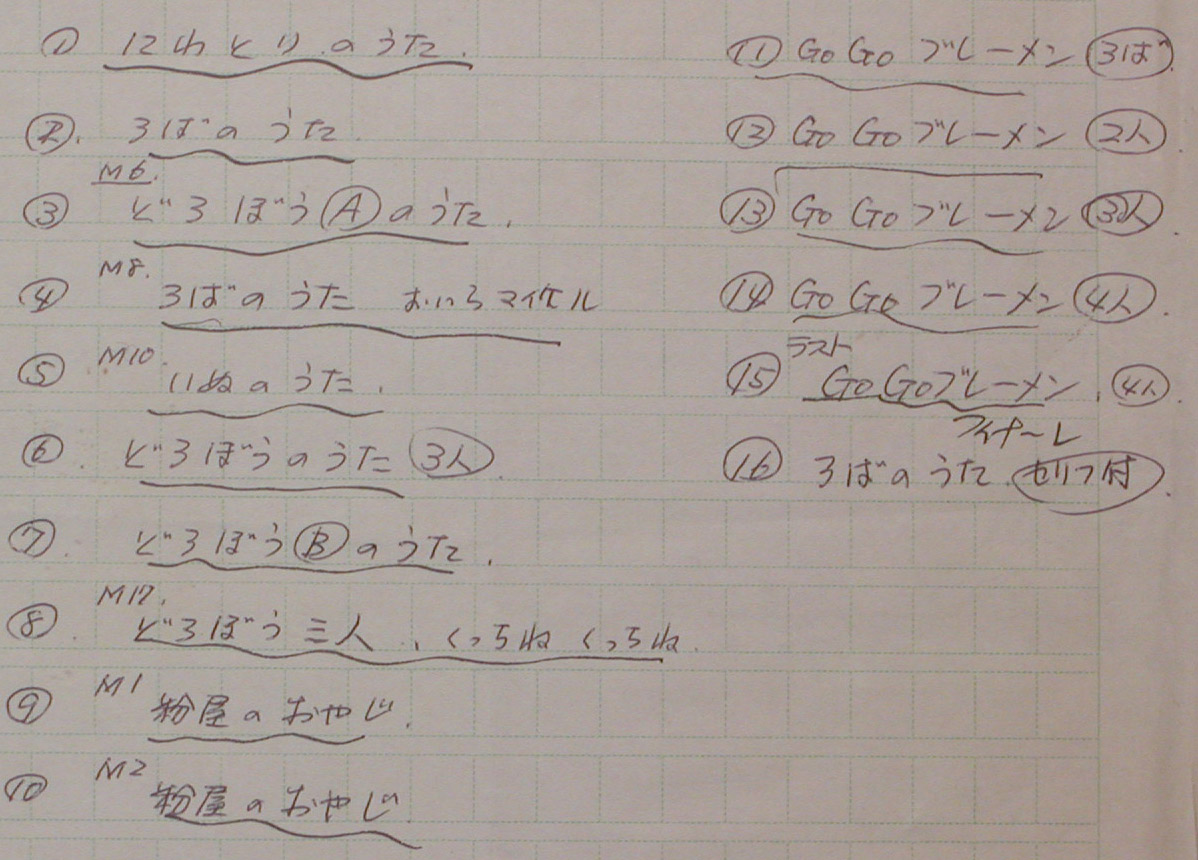 ① にわとりのうた.
②. ろばのうた
M6.
③ どろぼうⒶのうた.
M8.
④ ろばのうた おいらマイケル
M10
⑤ いぬのうた.
⑥. どろぼうのうた 3人.
⑦. どろぼうⒷのうた.
M12.
⑧. どろぼう三人、くっちねくっちね.
M1
⑨ 粉屋のおやじ.
M2
⑩ 粉屋のおやじ
⑪ GoGo ブレーメン ろば.
⑫ GoGo ブレーメン 2人.
⑬ GoGo ブレーメン 3人
⑭ GoGo ブレーメン 4人.
ラスト
⑮ GoGoブレーメン. 4人.
フィナーレ
⑯ ろばのうた.セリフ付.